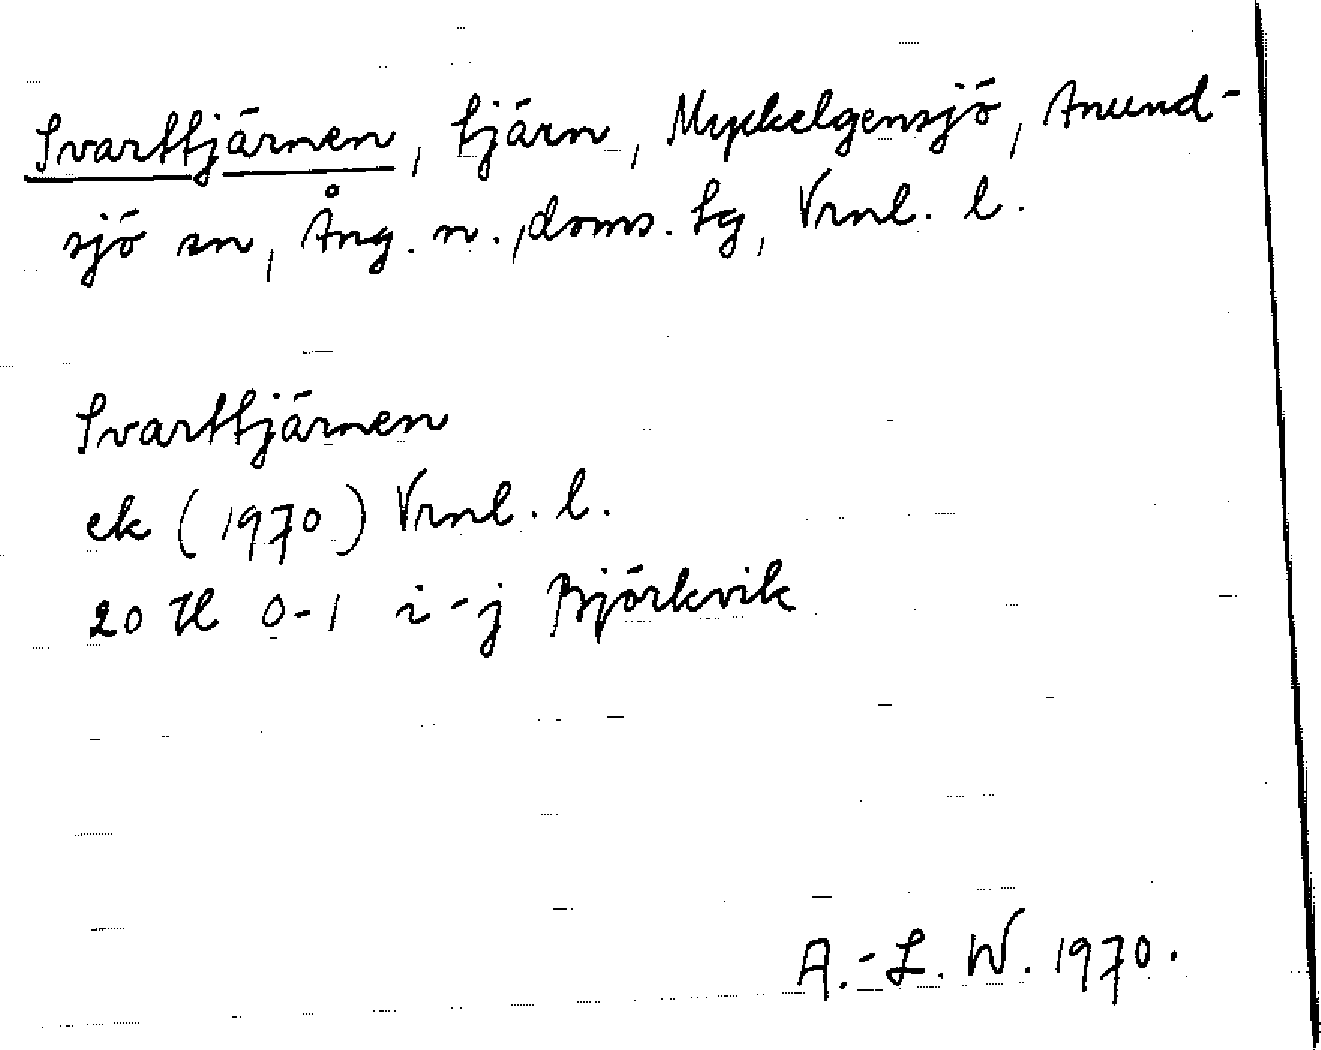 Svarttjärnen, tjärn, Myckelgensjö, Anund-
sjö sn, Ång. n., doms. tg, Vrnl. l.
Svarttjärnen
ek (1970) Vrnl. l.
20 H 0-1 i-j Björkvik
A.-L. W. 1970.